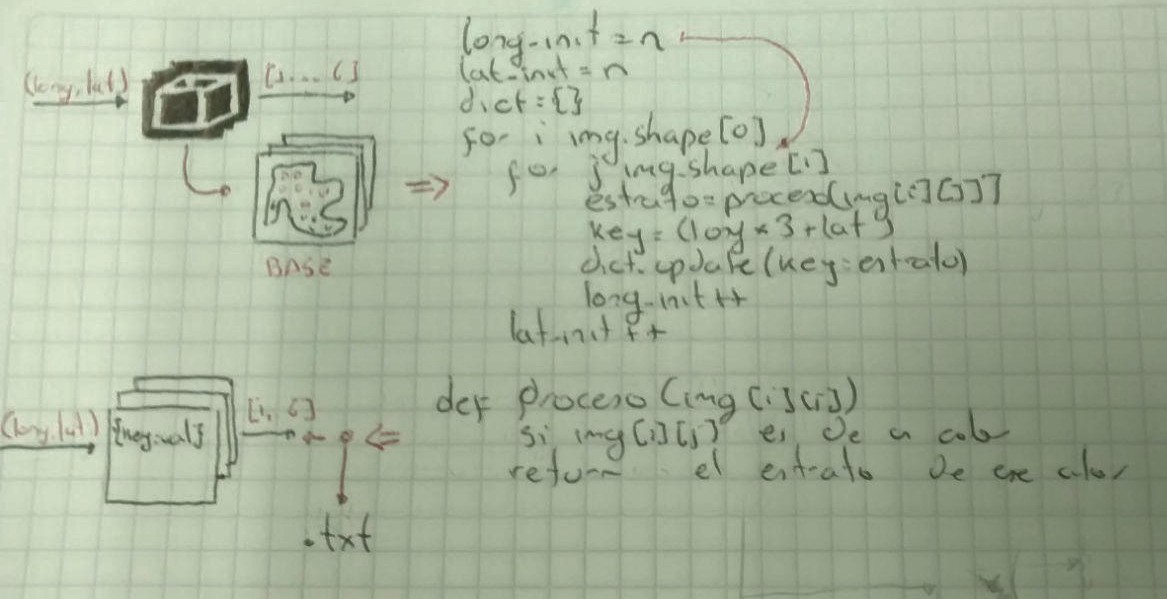 long-init = n
lat-init = n
dict = {}
for i img.shape[0]
for j img.shape[1]
estrato = proceso(img[i][j])
key = (long * 3 + lat)
dict.update(key:estrato)
long-init ++
lat-init ++
(long, lat)
[1...6]
=>
BASE
(long, lat)
{key:val}
[1, 6]
.txt
def proceso (img[i][j])
si img[i][j] es de a color
return el estrato de ese color